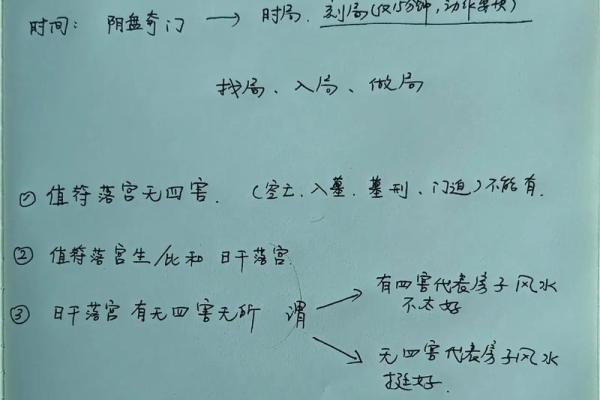 时间: 阴盘奇门 → 时局、刻局(仅15分钟,动作要快)
找局、入局、做局
① 值符落宫无四害. (空亡、入墓、墓刑、门迫)不能有.
② 值符落宫生/比和 日干落宫.
③ 日干落宫有无四害无所 谓
有四害代表房子风水
不太好
无四害代表房子风水
挺好.